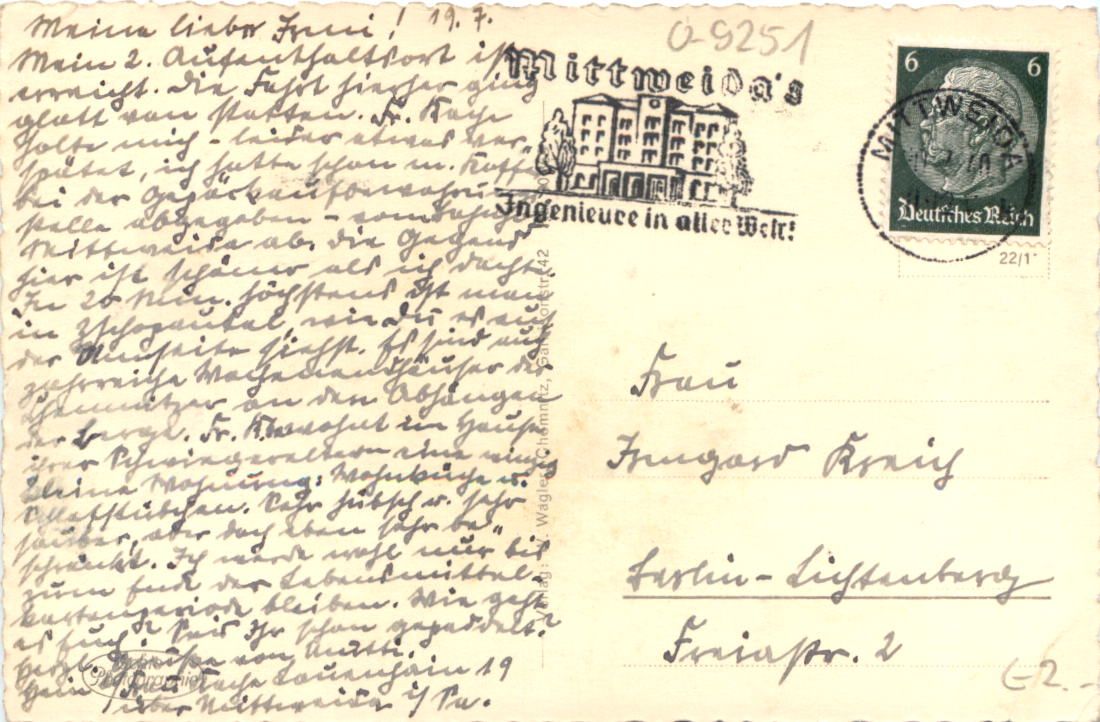 Meine liebe Irmi! 19.7.
Mein 2. Aufenthaltsort ist
erreicht. Die Fahrt hierher ging
glatt von statten. Fr. Kache
holte mich – leider etwas ver-
spätet, ich hatte schon m. Koffer
bei der Gepäckaufbewahrungs
stelle abgegeben – vom Bahnhof
Mittweida ab. Die Gegend
hier ist schöner als ich dachte.
In 20 Min. höchstens ist man
im Zschopautal, wie Du es auf
der Umseite siehst. Es sind auch
zahlreiche Wochenendhäuser der
Chemnitzer an den Abhängen
der Berge. Fr. K. wohnt im Hause
ihrer Schwiegereltern eine
kleine Wohnung: Wohnküche u.
Schlafstübchen. Sehr hübsch u. sehr
sauber, aber doch eben sehr be-
schränkt. Ich werde wohl nur bis
zum Ende der Lebensmittel-
kartenperiode bleiben. Wie geht
es Euch? Seid Ihr schon gepaddelt?
Herzl. Grüsse von Mutti.
Frau Kache Lauenhain 19
über Mittweida i/Sa.
Photographie
Verlag: W. Wagler, Chemnitz, 42
O-9251
Mittweida's
Ingenieure in aller Welt!
MITTWEIDA
6 6
Deutsches Reich
22/1
Frau
Irmgard Kreich
Berlin-Lichtenberg
Freiastr. 2
E2.-